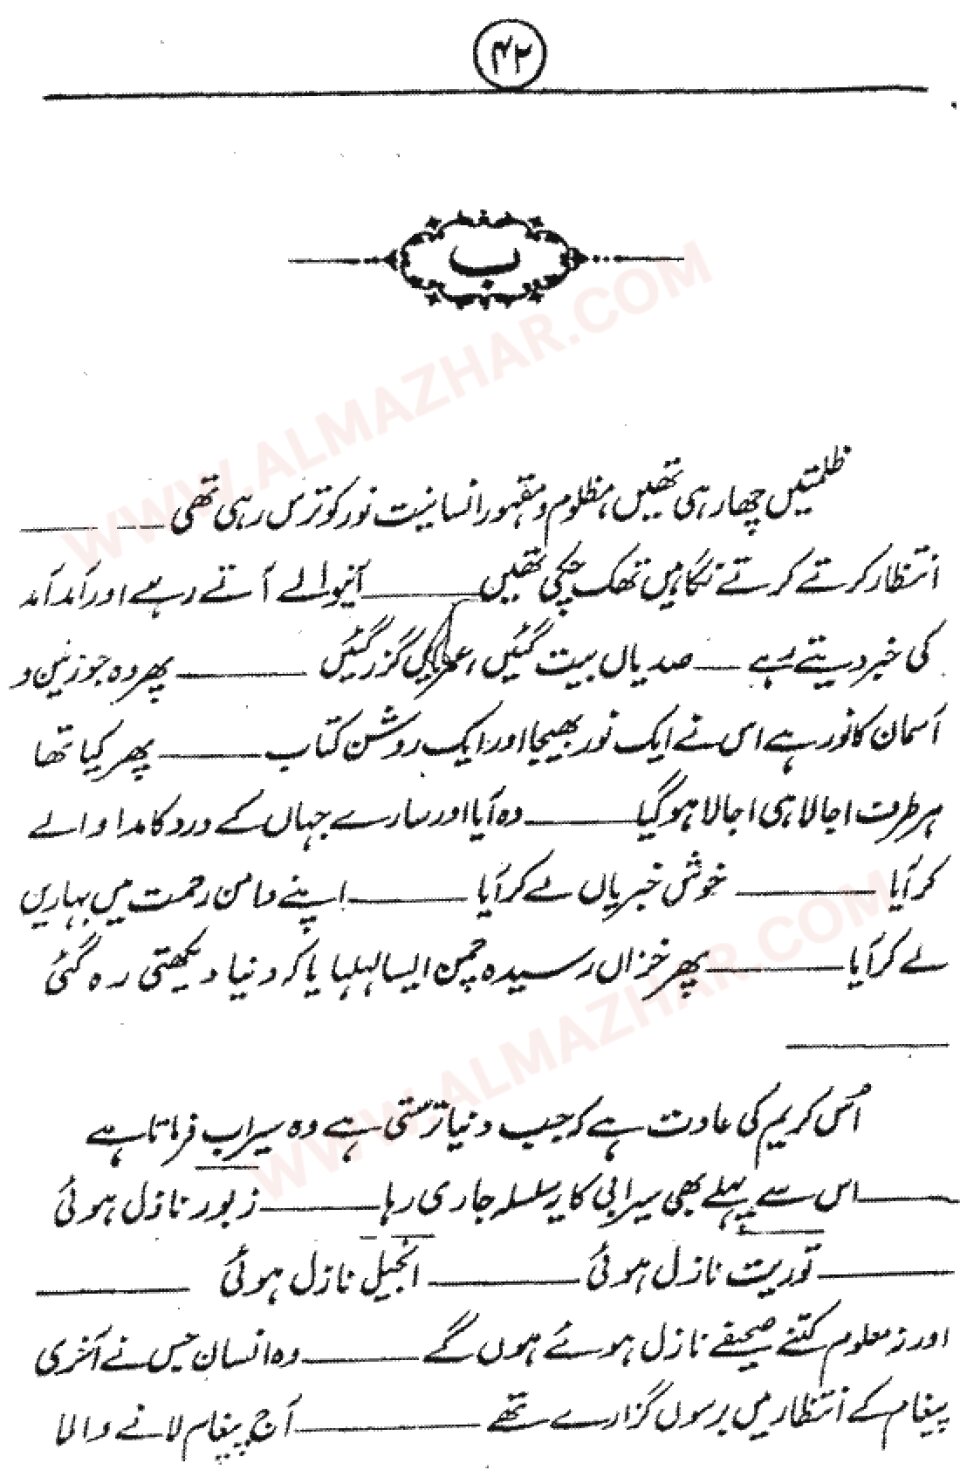 ۴۲
ب
ظلمتیں چھا رہی تھیں، مظلوم و مقہور انسانیت نور کو ترس رہی تھی ——
انتظار کرتے کرتے نگاہیں تھک چکی تھیں —— آنیوالے آتے رہے اور آمد آمد
کی خبر دیتے رہے —— صدیاں بیت گئیں، عمریں گزر گئیں —— پھر وہ جو زمین و
آسمان کا نور ہے اس نے ایک نور بھیجا اور ایک روشن کتاب —— پھر کیا تھا
ہر طرف اجالا ہی اجالا ہو گیا —— وہ آیا اور سارے جہاں کے درد کا مداوا لے
کر آیا —— خوش خبریاں لے کر آیا —— اپنے دامن رحمت میں بہاریں
لے کر آیا —— پھر خزاں رسیدہ چمن ایسا لہلہایا کہ دنیا دیکھتی رہ گئی
——
اُس کریم کی عادت ہے کہ جب دنیا ترستی ہے وہ سیراب فرماتا ہے
—— اس سے پہلے بھی سیرابی کا یہ سلسلہ جاری رہا —— زبور نازل ہوئی
—— توریت نازل ہوئی —— انجیل نازل ہوئی ——
اور نہ معلوم کتنے صحیفے نازل ہوئے ہوں گے —— وہ انسان جس نے آخری
پیغام کے انتظار میں برسوں گزارے تھے —— آج پیغام لانے والا
WWW.ALMAZHAR.COM
WWW.ALMAZHAR.COM